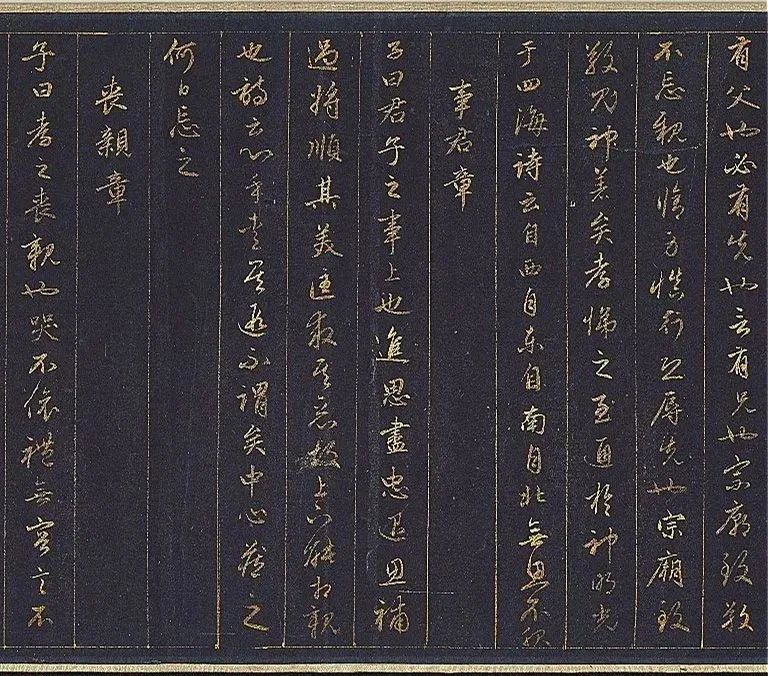 有父也必有先也言有兄也宗廟致敬
不忘親也脩身慎行恐辱先也宗廟致
敬鬼神著矣孝悌之至通於神明光
于四海詩云自西自東自南自北無思不服
事君章
子曰君子之事上也進思盡忠退思補
過將順其美匡救其惡故上下能相親
也詩云心乎愛矣遐不謂矣中心藏之
何日忘之
喪親章
子曰孝之喪親也哭不偯禮無容言不